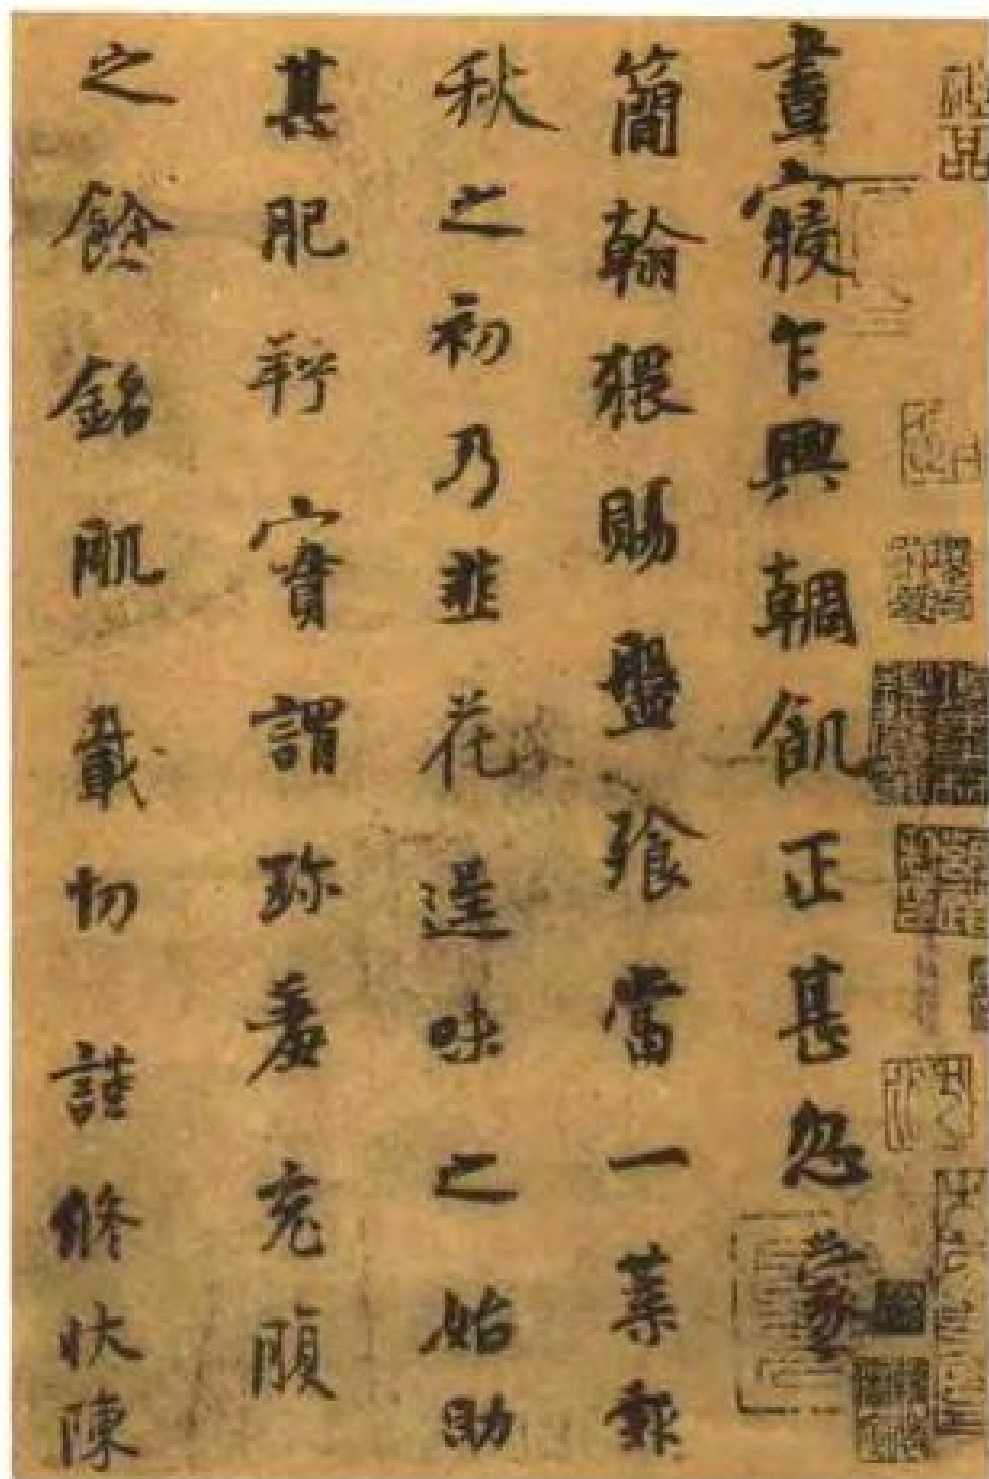 晝寢乍興輖飢正甚忽蒙
簡翰猥賜盤飧當一葉報
秋之初乃韭花逞味之始助
其肥羜實謂珍羞充腹
之餘銘肌載切謹脩狀陳